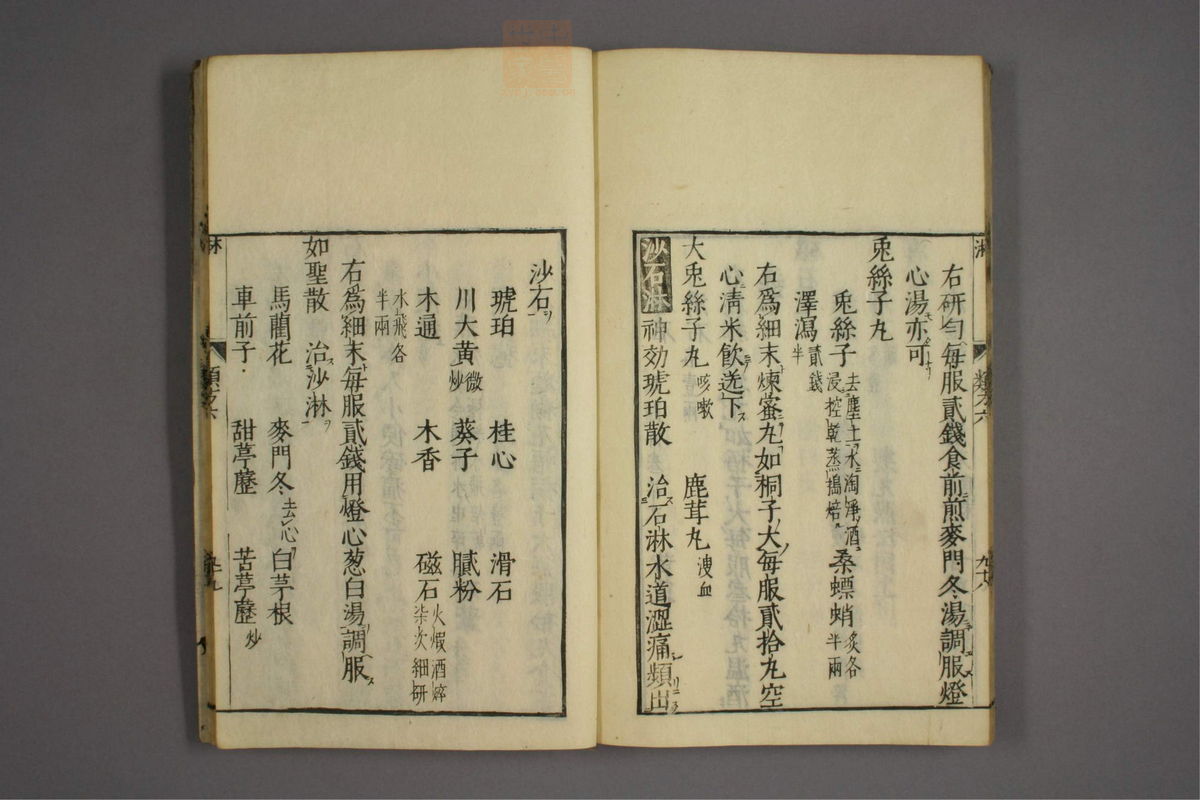 右研勻每服貳錢食前煎麥門冬湯調服燈
心湯亦可
兎絲子丸
兎絲子 去塵土水淘淨酒浸控乾蒸搗焙 桑螵蛸 炙各半兩
澤瀉 貳錢半
右爲細末煉蜜丸如桐子大每服貳拾丸空
心清米飲送下
大兎絲子丸 咳嗽 鹿茸丸 洩血
沙石淋 神効琥珀散 治石淋水道澀痛頻出
沙石
琥珀 桂心 滑石
川大黃 微炒 葵子 膩粉
木通 木香 磁石 火煅酒焠柒次細研
水飛各半兩
右爲細末每服貳錢用燈心葱白湯調服
如聖散 治沙淋
馬藺花 麥門冬 去心 白茅根
車前子 甜葶藶 苦葶藶 炒